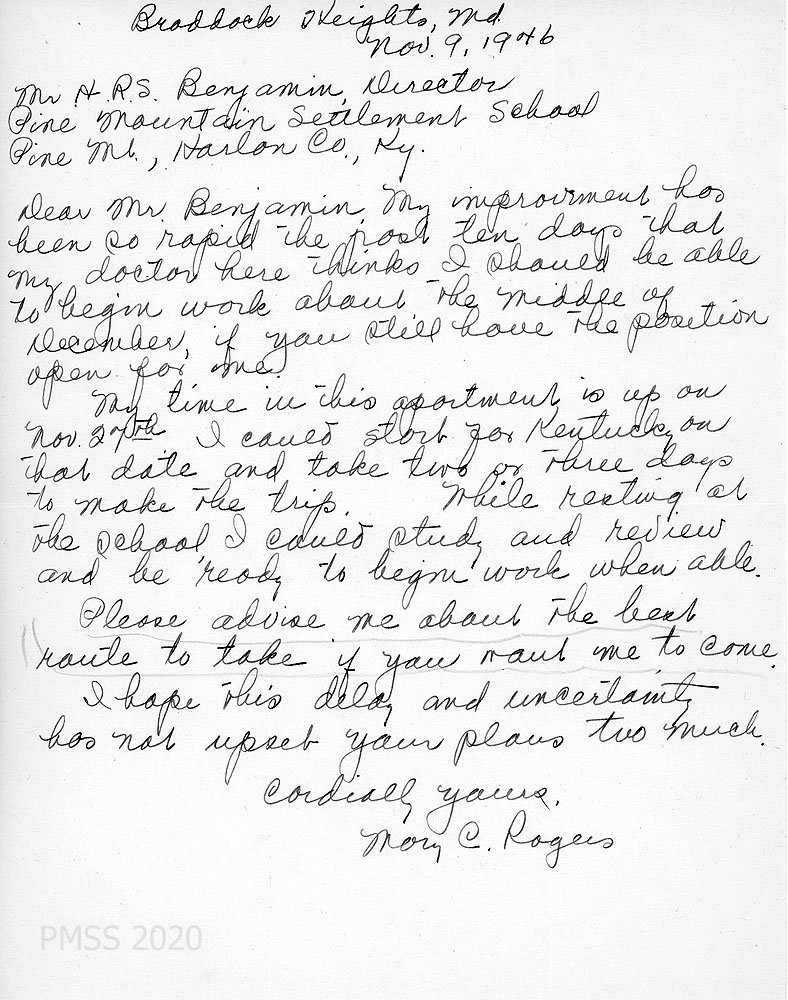 Braddock Heights, Md.
Nov. 9, 1946
Mr H.R.S. Benjamin, Director
Pine Mountain Settlement School
Pine Mt., Harlan Co., Ky.
Dear Mr. Benjamin, My improvement has
been so rapid the past ten days that
my doctor here thinks I should be able
to begin work about the middle of
December, if you still have the position
open for me.
My time in this apartment is up on
Nov. 27th I could start for Kentucky on
that date and take two or three days
to make the trip. While resting at
the school I could study and review
and be ready to begin work when able.
Please advise me about the best
route to take if you want me to come.
I hope this delay and uncertainty
has not upset your plans too much.
Cordially yours,
Mary C. Rogers
PMSS 2020